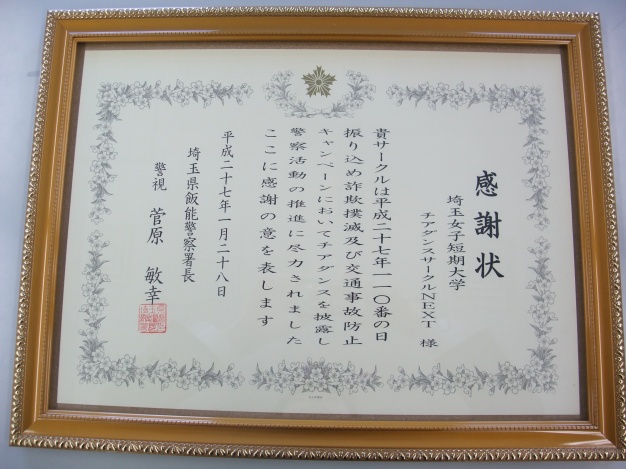 感謝状
埼玉女子短期大学
チアダンスサークルNEXT 様
貴サークルは平成二十七年一一〇番の日
振り込め詐欺撲滅及び交通事故防止
キャンペーンにおいてチアダンスを披露し
警察活動の推進に尽力されました
ここに感謝の意を表します
平成二十七年一月二十八日
埼玉県飯能警察署長
警視 菅原 敏幸